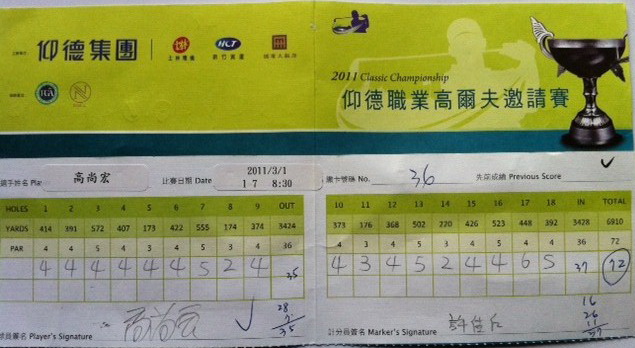 仰德集團
HCT
2011 Classic Championship
仰德職業高爾夫邀請賽
選手姓名 高尚宏 比賽日期 Date 2011/3/1
17 8:30
No. 36 先前成績 Previous Score
HOLES 1 2 3 4 5 6 7 8 9 OUT 10 11 12 13 14 15 16 17 18 IN TOTAL
YARDS 414 391 572 407 173 422 555 174 374 3424 373 176 368 502 220 426 523 448 392 3428 6910
PAR 4 4 5 4 3 4 5 3 4 36 4 3 4 5 3 4 5 4 4 36 72
4 4 4 4 4 4 5 2 4 35 4 3 4 5 2 4 4 6 5 37 72
Player's Signature 高尚宏 28
7
35
計分員簽名 Marker's Signature 16
26
11
37